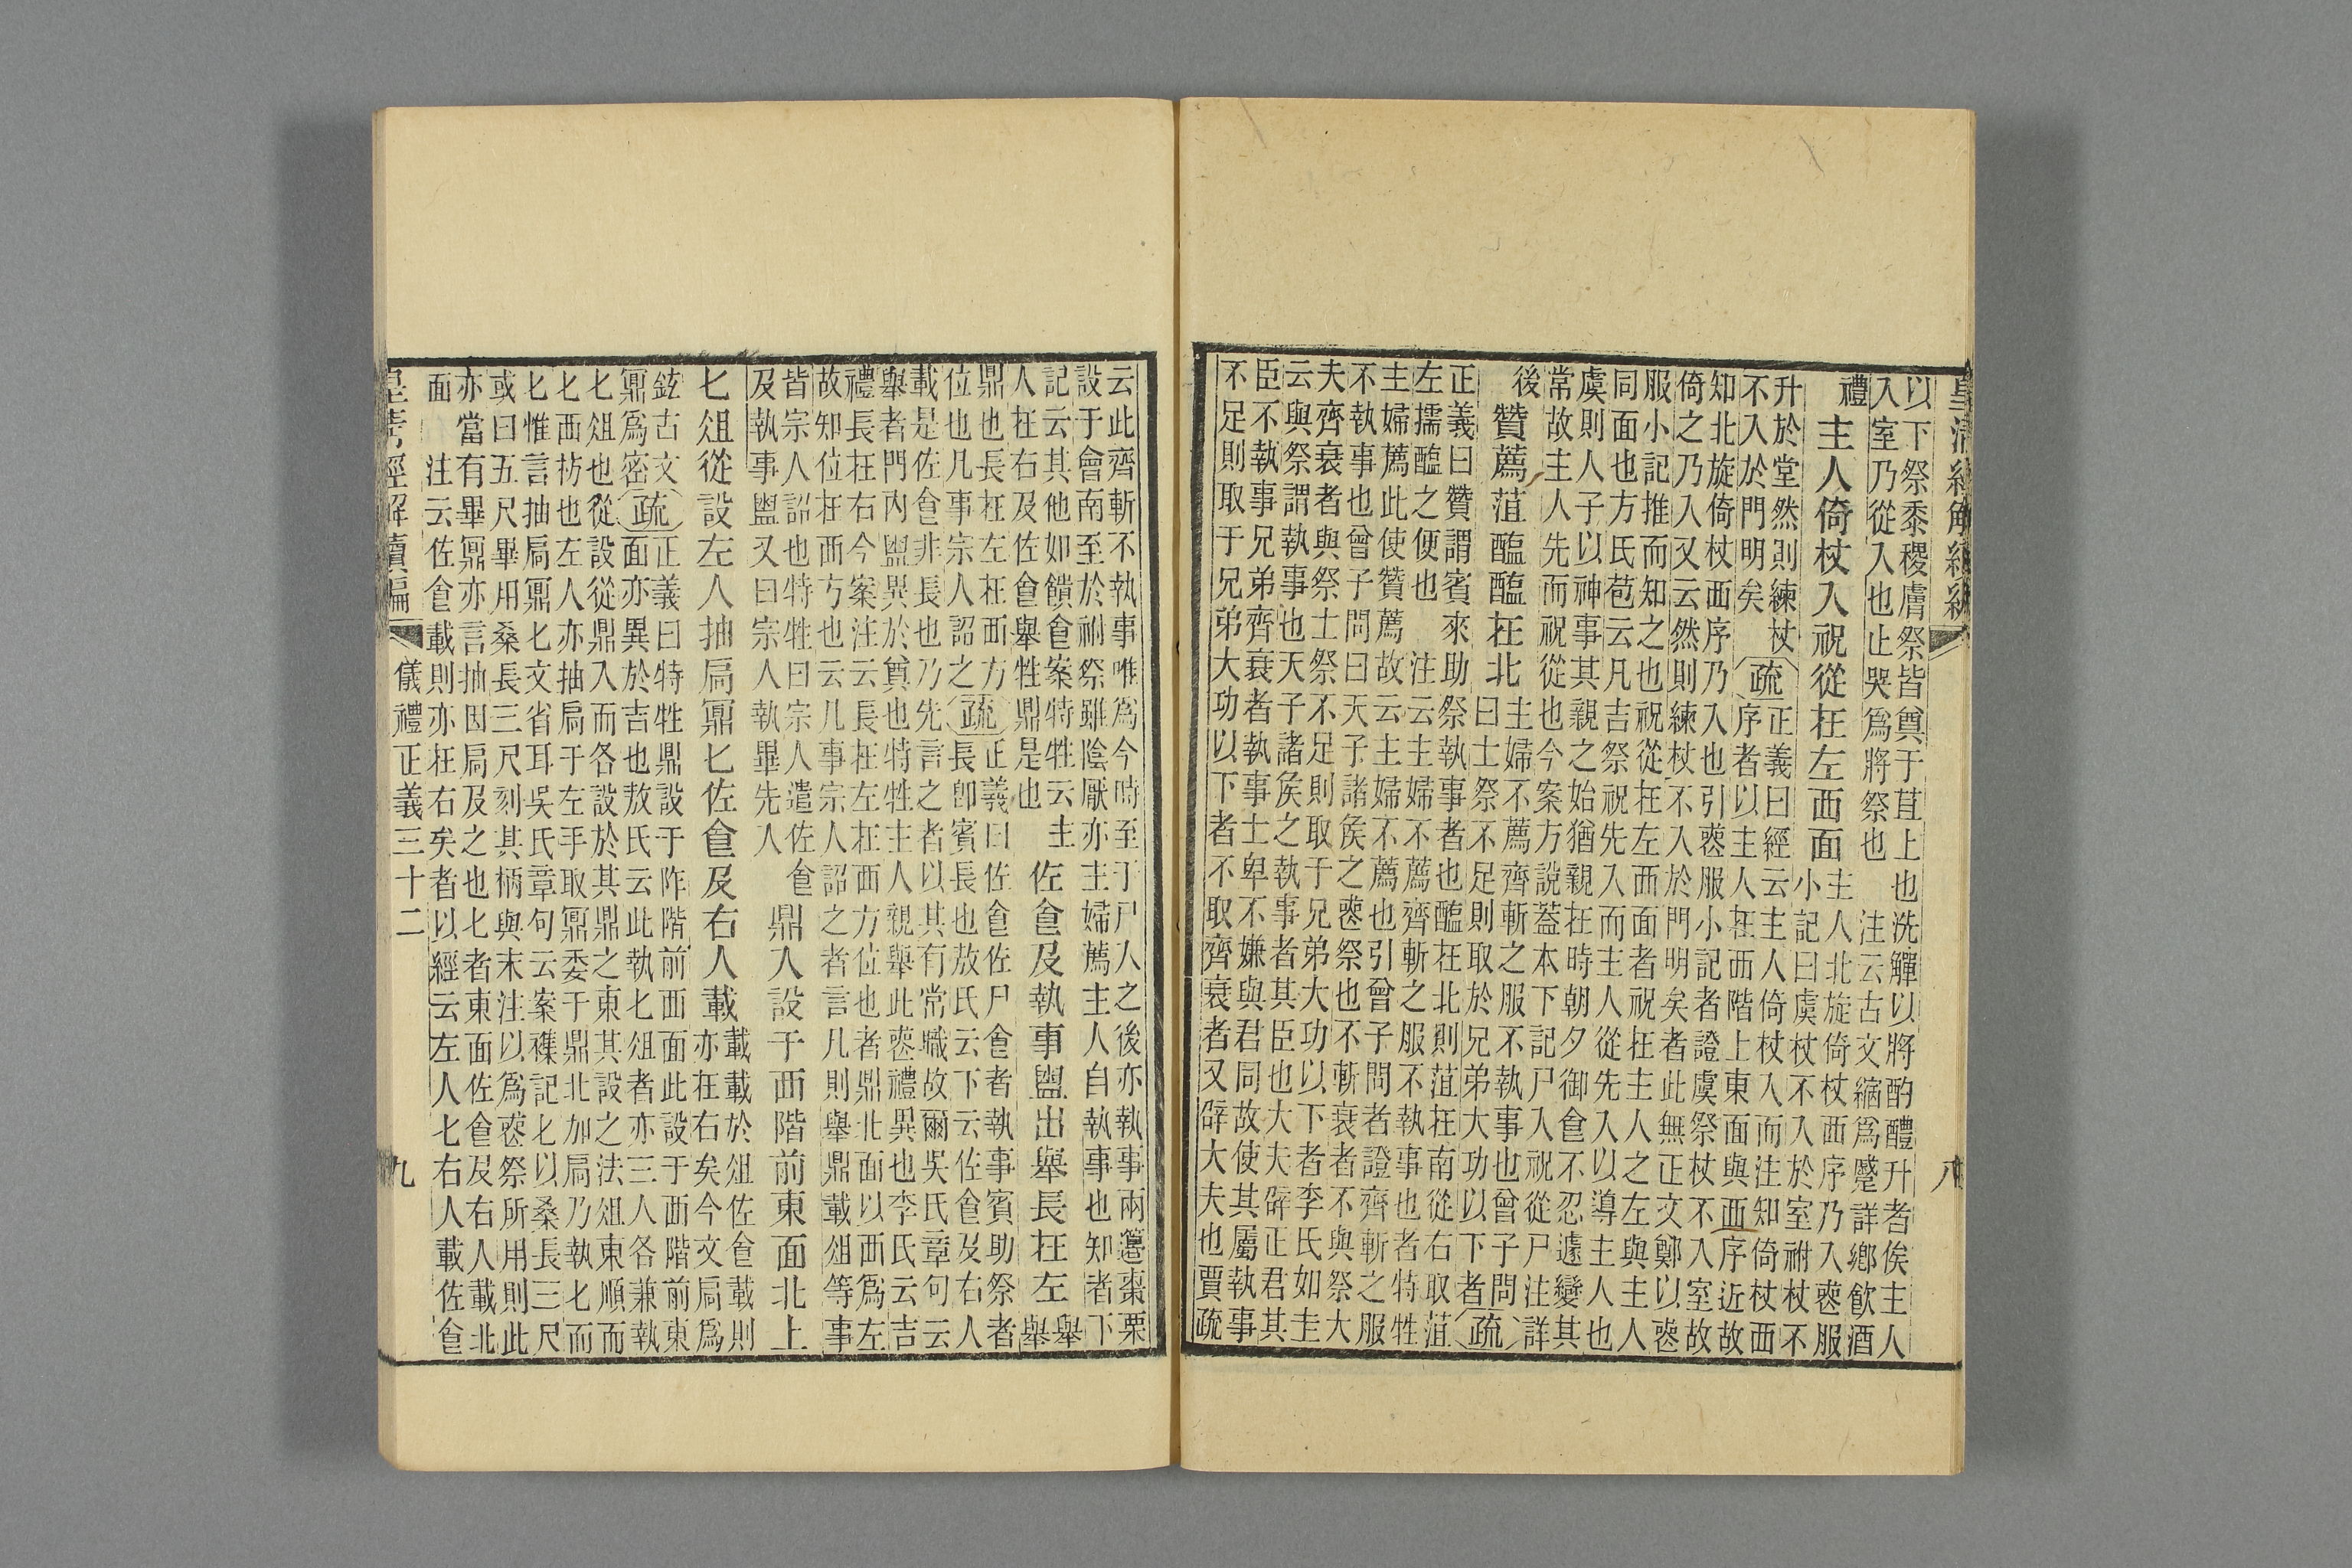 皇清經解續編 八
以下祭黍稷膚祭皆奠于苴上也洗觶以將酌醴升者俟主人
入室乃從入也止哭爲將祭也 注云古文縮爲蹙詳鄉飲酒
禮 主人倚杖入祝從在左西面 主人北旋倚杖西序乃入喪服
小記曰虞杖不入於室祔杖不
升於堂然則練杖
不入於門明矣
疏 正義曰經云主人倚杖入而注知倚杖西
序者以主人在西階上東面與西序近故
知北旋倚杖西序乃入也引喪服小記者證虞祭杖不入室故
倚之乃入又云然則練杖不入於門明矣者此無正文鄭以喪
服小記推而知之也祝從在左西面者祝在主人之左與主人
同面也方氏苞云凡吉祭祝先入而主人從先入以導主人也
虞則人子以神事其親之始猶親在時朝夕御食不忍遽變其
常故主人先而祝從也今案方說蓋本下記尸入祝從尸注詳
後 贊薦菹醢醢在北 主婦不薦齊斬之服不執事也曾子問
曰士祭不足則取於兄弟大功以下者 疏
正義曰贊謂賓來助祭執事者也醢在北則菹在南從右取菹
左擩醢之便也 注云主婦不薦齊斬之服不執事也者特牲
主婦薦此使贊薦故云主婦不薦也引曾子問者證齊斬之服
不執事也曾子問曰天子諸侯之喪祭也不斬衰者不與祭大
夫齊衰者與祭士祭不足則取于兄弟大功以下者李氏如圭
云與祭謂執事也天子諸侯之執事者其臣也大夫辟正君其
臣不執事兄弟齊衰者執事士卑不嫌與君同故使其屬執事
不足則取于兄弟大功以下者不取齊衰者又辟大夫也賈疏
云此齊斬不執事唯爲今時至于尸入之後亦執事兩籩棗栗
設于會南至於祔祭雖陰厭亦主婦薦主人自執事也知者下
記云其他如饋食案特牲云主
人在右及佐食舉牲鼎是也
佐食及執事盥出舉長在左 舉舉
鼎也長在左在西方
位也凡事宗人詔之
疏 正義曰佐食佐尸食者執事賓助祭者
長卽賓長也敖氏云下云佐食及右人
載是佐食非長也乃先言之者以其有常職故爾吳氏章句云
舉者門內盥異於奠也特牲主人親舉此喪禮異也李氏云吉
禮長在右今案注云長在左在西方位也者鼎北面以西爲左
故知位在西方也云凡事宗人詔之者言凡則舉鼎載俎等事
皆宗人詔也特牲曰宗人遣佐食
及執事盥又曰宗人執畢先入
鼎入設于西階前東面北上
匕俎從設左人抽扃鼏匕佐食及右人載 載載於俎佐食載則
亦在右矣今文扃爲
鉉古文
鼏爲密
疏 正義曰特牲鼎設于阼階前西面此設于西階前東
面亦異於吉也敖氏云此執匕俎者亦三人各兼執
匕俎也從設從鼎入而各設於其鼎之東其設之法俎東順而
匕西枋也左人亦抽扃于左手取鼏委于鼎北加扃乃執匕而
匕惟言抽扃鼏匕文省耳吳氏章句云案襍記匕以桑長三尺
或曰五尺畢用桑長三尺刻其柄與末注以爲喪祭所用則此
亦當有畢鼏亦言抽因扃及之也匕者東面佐食及右人載北
面 注云佐食載則亦在右矣者以經云左人匕右人載佐食
皇清經解續編 儀禮正義三十二 九